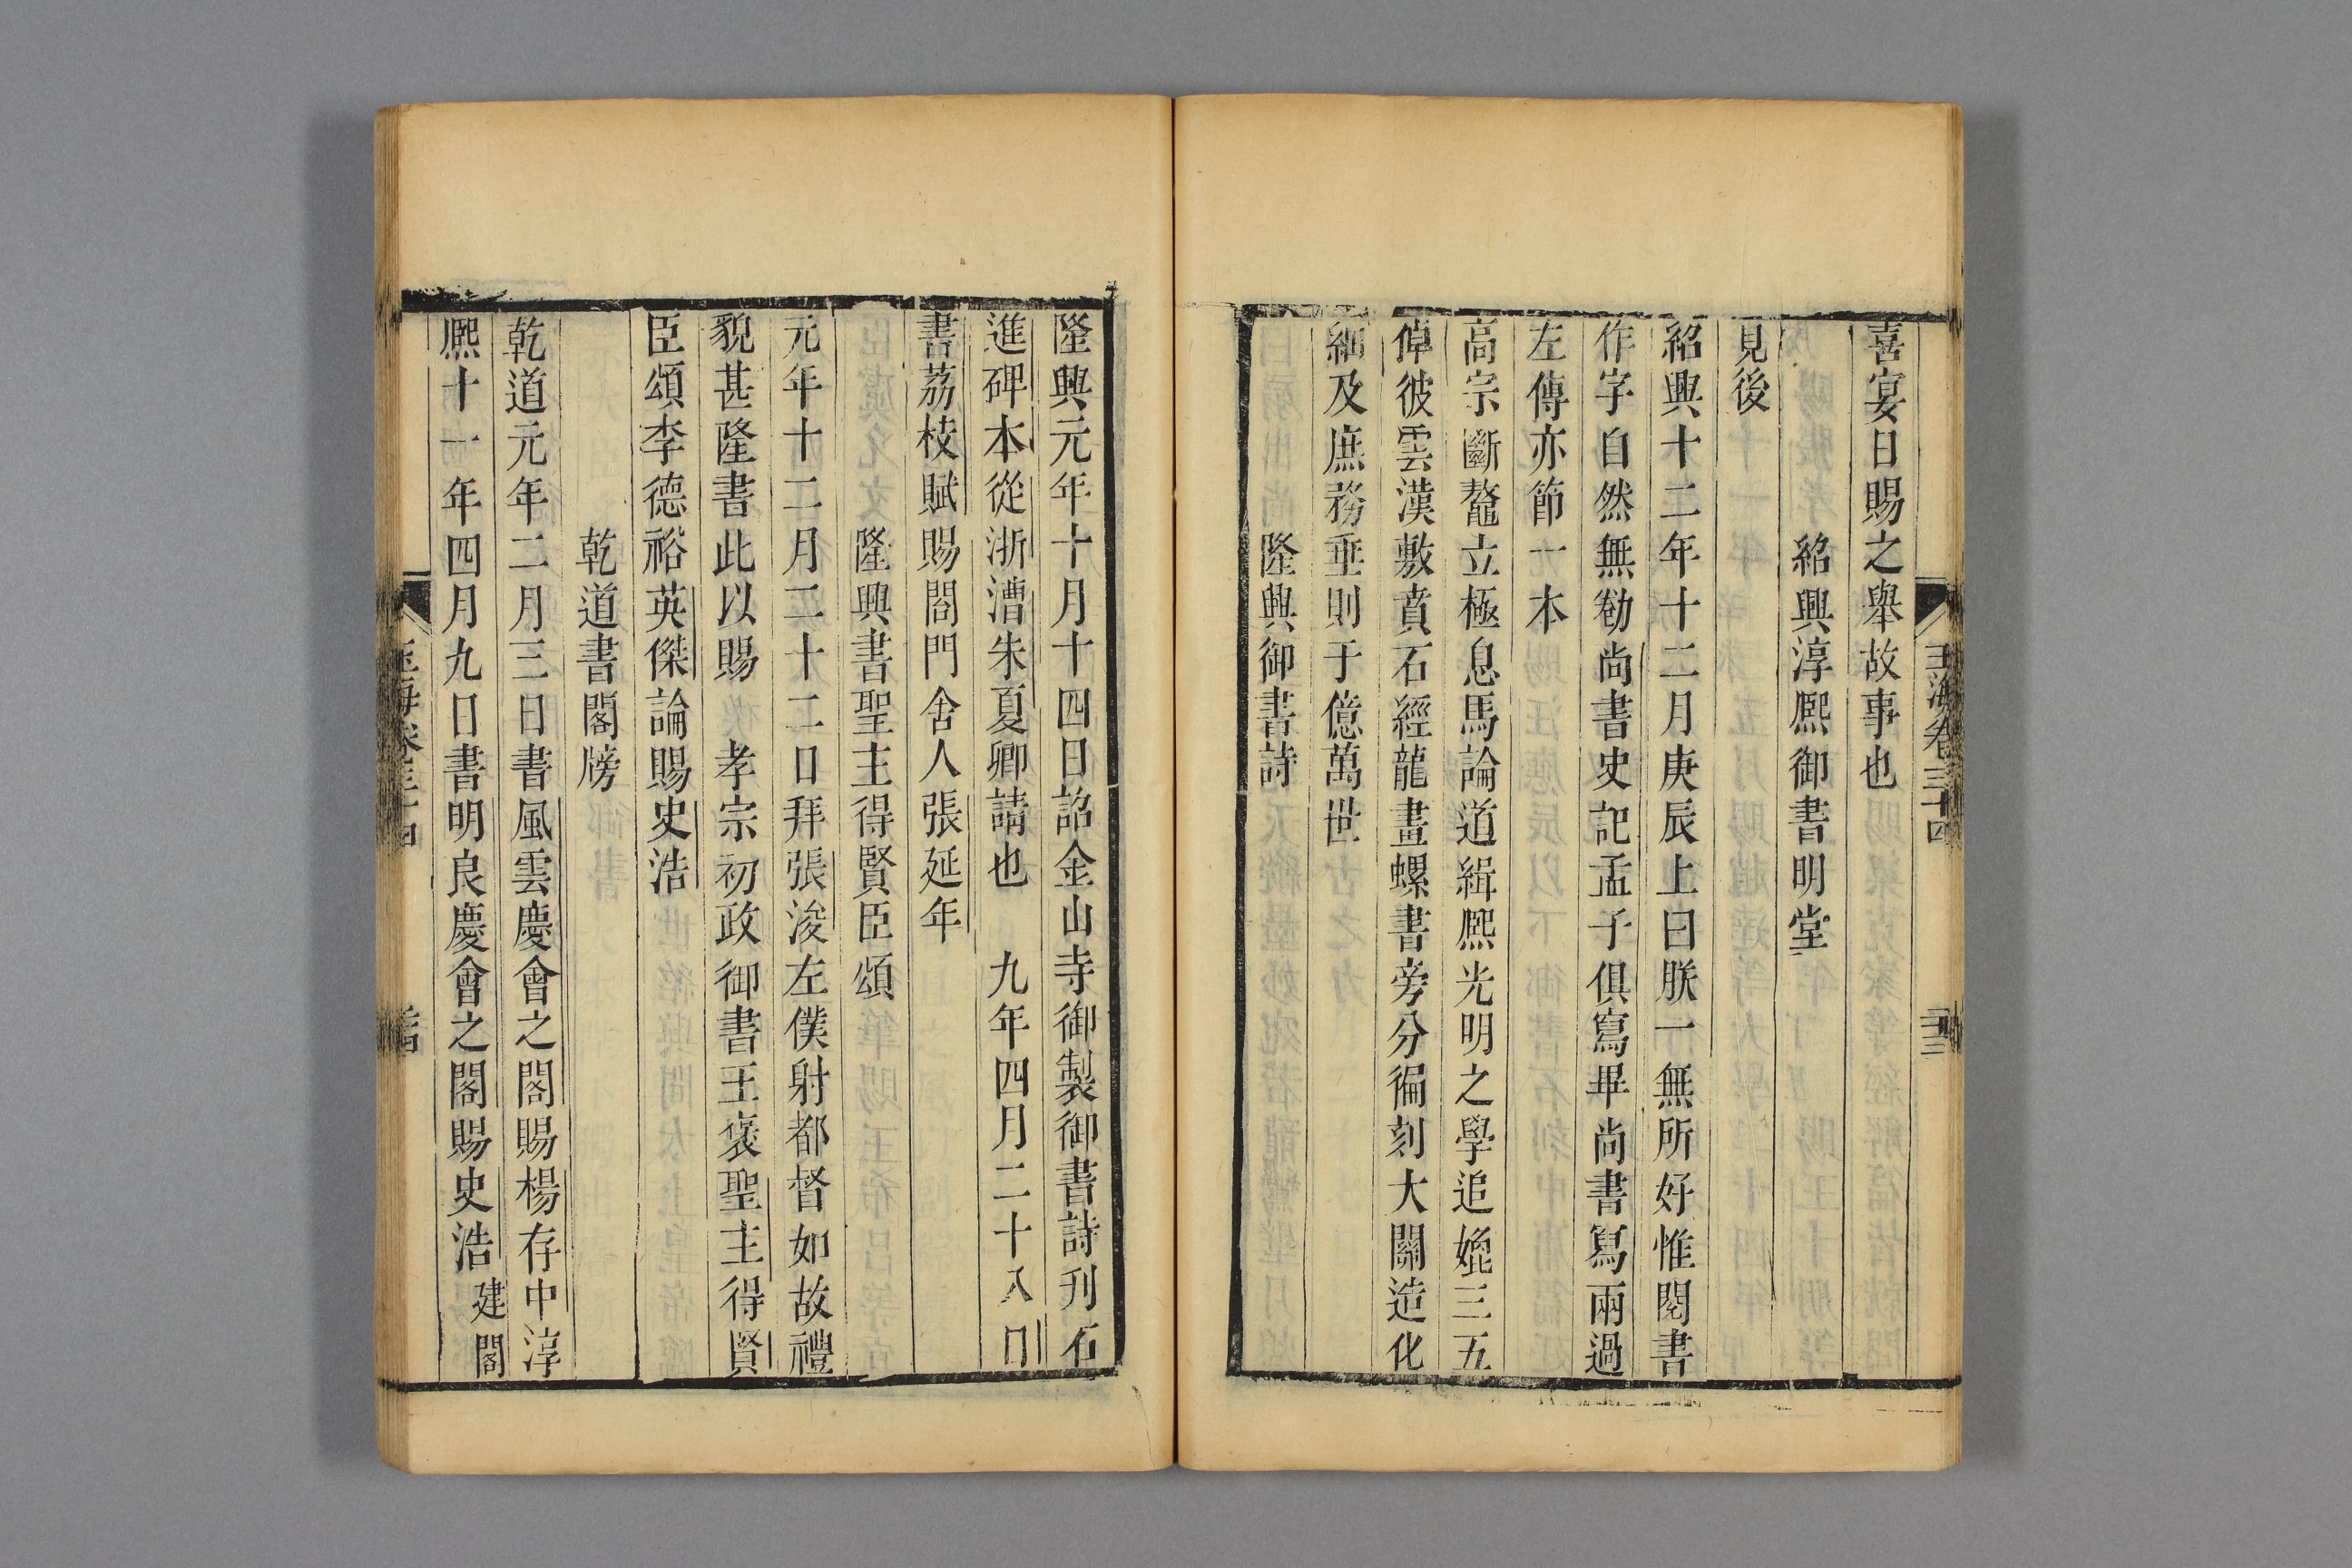 玉海卷三十四
三十三
喜宴日賜之舉故事也
紹興淳熈御書明堂
見後
紹興十二年十二月庚辰上曰朕一無所好惟閱書
作字自然無勌尚書史記孟子俱寫畢尚書寫兩過
左傳亦節一本
高宗斷鼇立極息馬論道緝熈光明之學追媲三五
倬彼雲漢敷賁石經龍畫螺書旁分徧刻大闡造化
細及庶務垂則于億萬世
隆興御書詩
隆興元年十月十四日詔金山寺御製御書詩刊石
進碑本從浙漕朱夏卿請也　九年四月二十八日
書荔枝賦賜閤門舍人張延年
隆興書聖主得賢臣頌
元年十二月二十二日拜張浚左僕射都督如故禮
貌甚隆書此以賜　孝宗初政御書王褒聖主得賢
臣頌李德裕英傑論賜史浩
乾道書閣牓
乾道元年二月三日書風雲慶會之閣賜楊存中淳
熈十一年四月九日書明良慶會之閣賜史浩建閣
玉海卷三十四